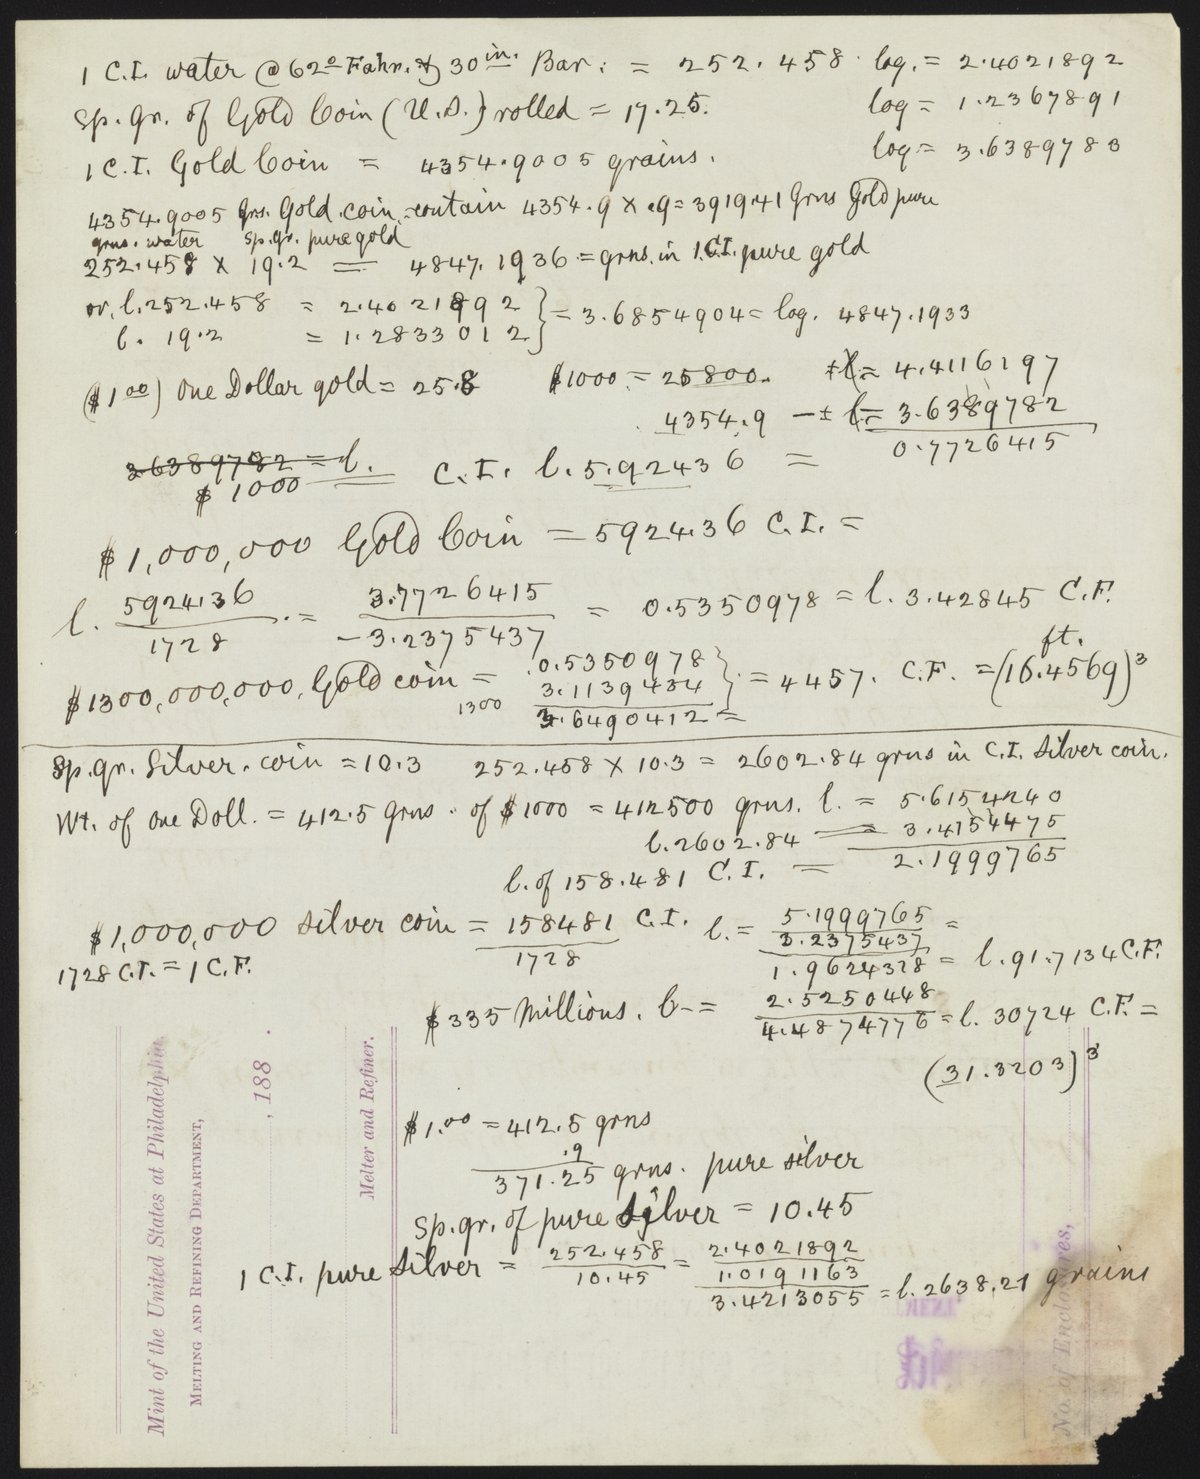 1 C.I. water @ 62° Fahr. & 30 in. Bar: = 252.458 log. = 2.4021892
Sp. gr. of Gold Coin (U.S.) rolled = 17.25. log = 1.2367891
1 C.I. Gold Coin = 4354.9005 grains. log = 3.6389783
4354.9005 grs. Gold coin contain 4354.9 × .9 = 3919.41 Grns Gold pure
grns. water sp. gr. pure gold
252.458 × 19.2 = 4847.1936 = grns. in 1 C.I. pure gold
or, l. 252.458 = 2.4021892 } = 3.6854904 = log. 4847.1933
l. 19.2 = 1.2833012
($1 00) One Dollar gold = 25.8 $1000 = 25800. l = 4.4116197
4354.9 - l = 3.6389782
0.7726415
3.6389782 = l.
$1000 = C.I. l. 5.92436 =
$1,000,000 Gold Coin = 5924.36 C.I. =
l. 5924.36 / 1728 . = 3.7726415 / - 3.2375437 = 0.5350978 = l. 3.42845 C.F.
$1300,000,000, Gold coin = 0.5350978 } = 4457. C.F. = (16.4569)³ ft.
1300 3.1139434
3.6490412 =
Sp. gr. Silver. coin = 10.3 252.458 × 10.3 = 2602.84 grns in C.I. Silver coin.
Wt. of One Doll. = 412.5 grns. of $1000 = 412500 grns. l. = 5.6154240
l. 2602.84 = 3.4154475
l. of 158.481 C.I. = 2.1999765
$1,000,000 Silver coin = 158481 / 1728 C.I. l. = 5.1999765 =
3.2375437
1728 C.I. = 1 C.F. 1.9624328 = l. 91.7134 C.F.
$335 Millions. l. = 2.5250448
4.4874776 = l. 30724 C.F. =
(31.3203)³
$1.00 = 412.5 grns
.9
371.25 grns. pure silver
Sp. gr. of pure Silver = 10.45
1 C.I. pure Silver = 252.458 / 10.45 = 2.4021892
1.0191163
3.4213055 = l. 2638.21 grains
Mint of the United States at Philadelphia,
MELTING AND REFINING DEPARTMENT,
, 188 .
Melter and Refiner.
No. of Enclosures,